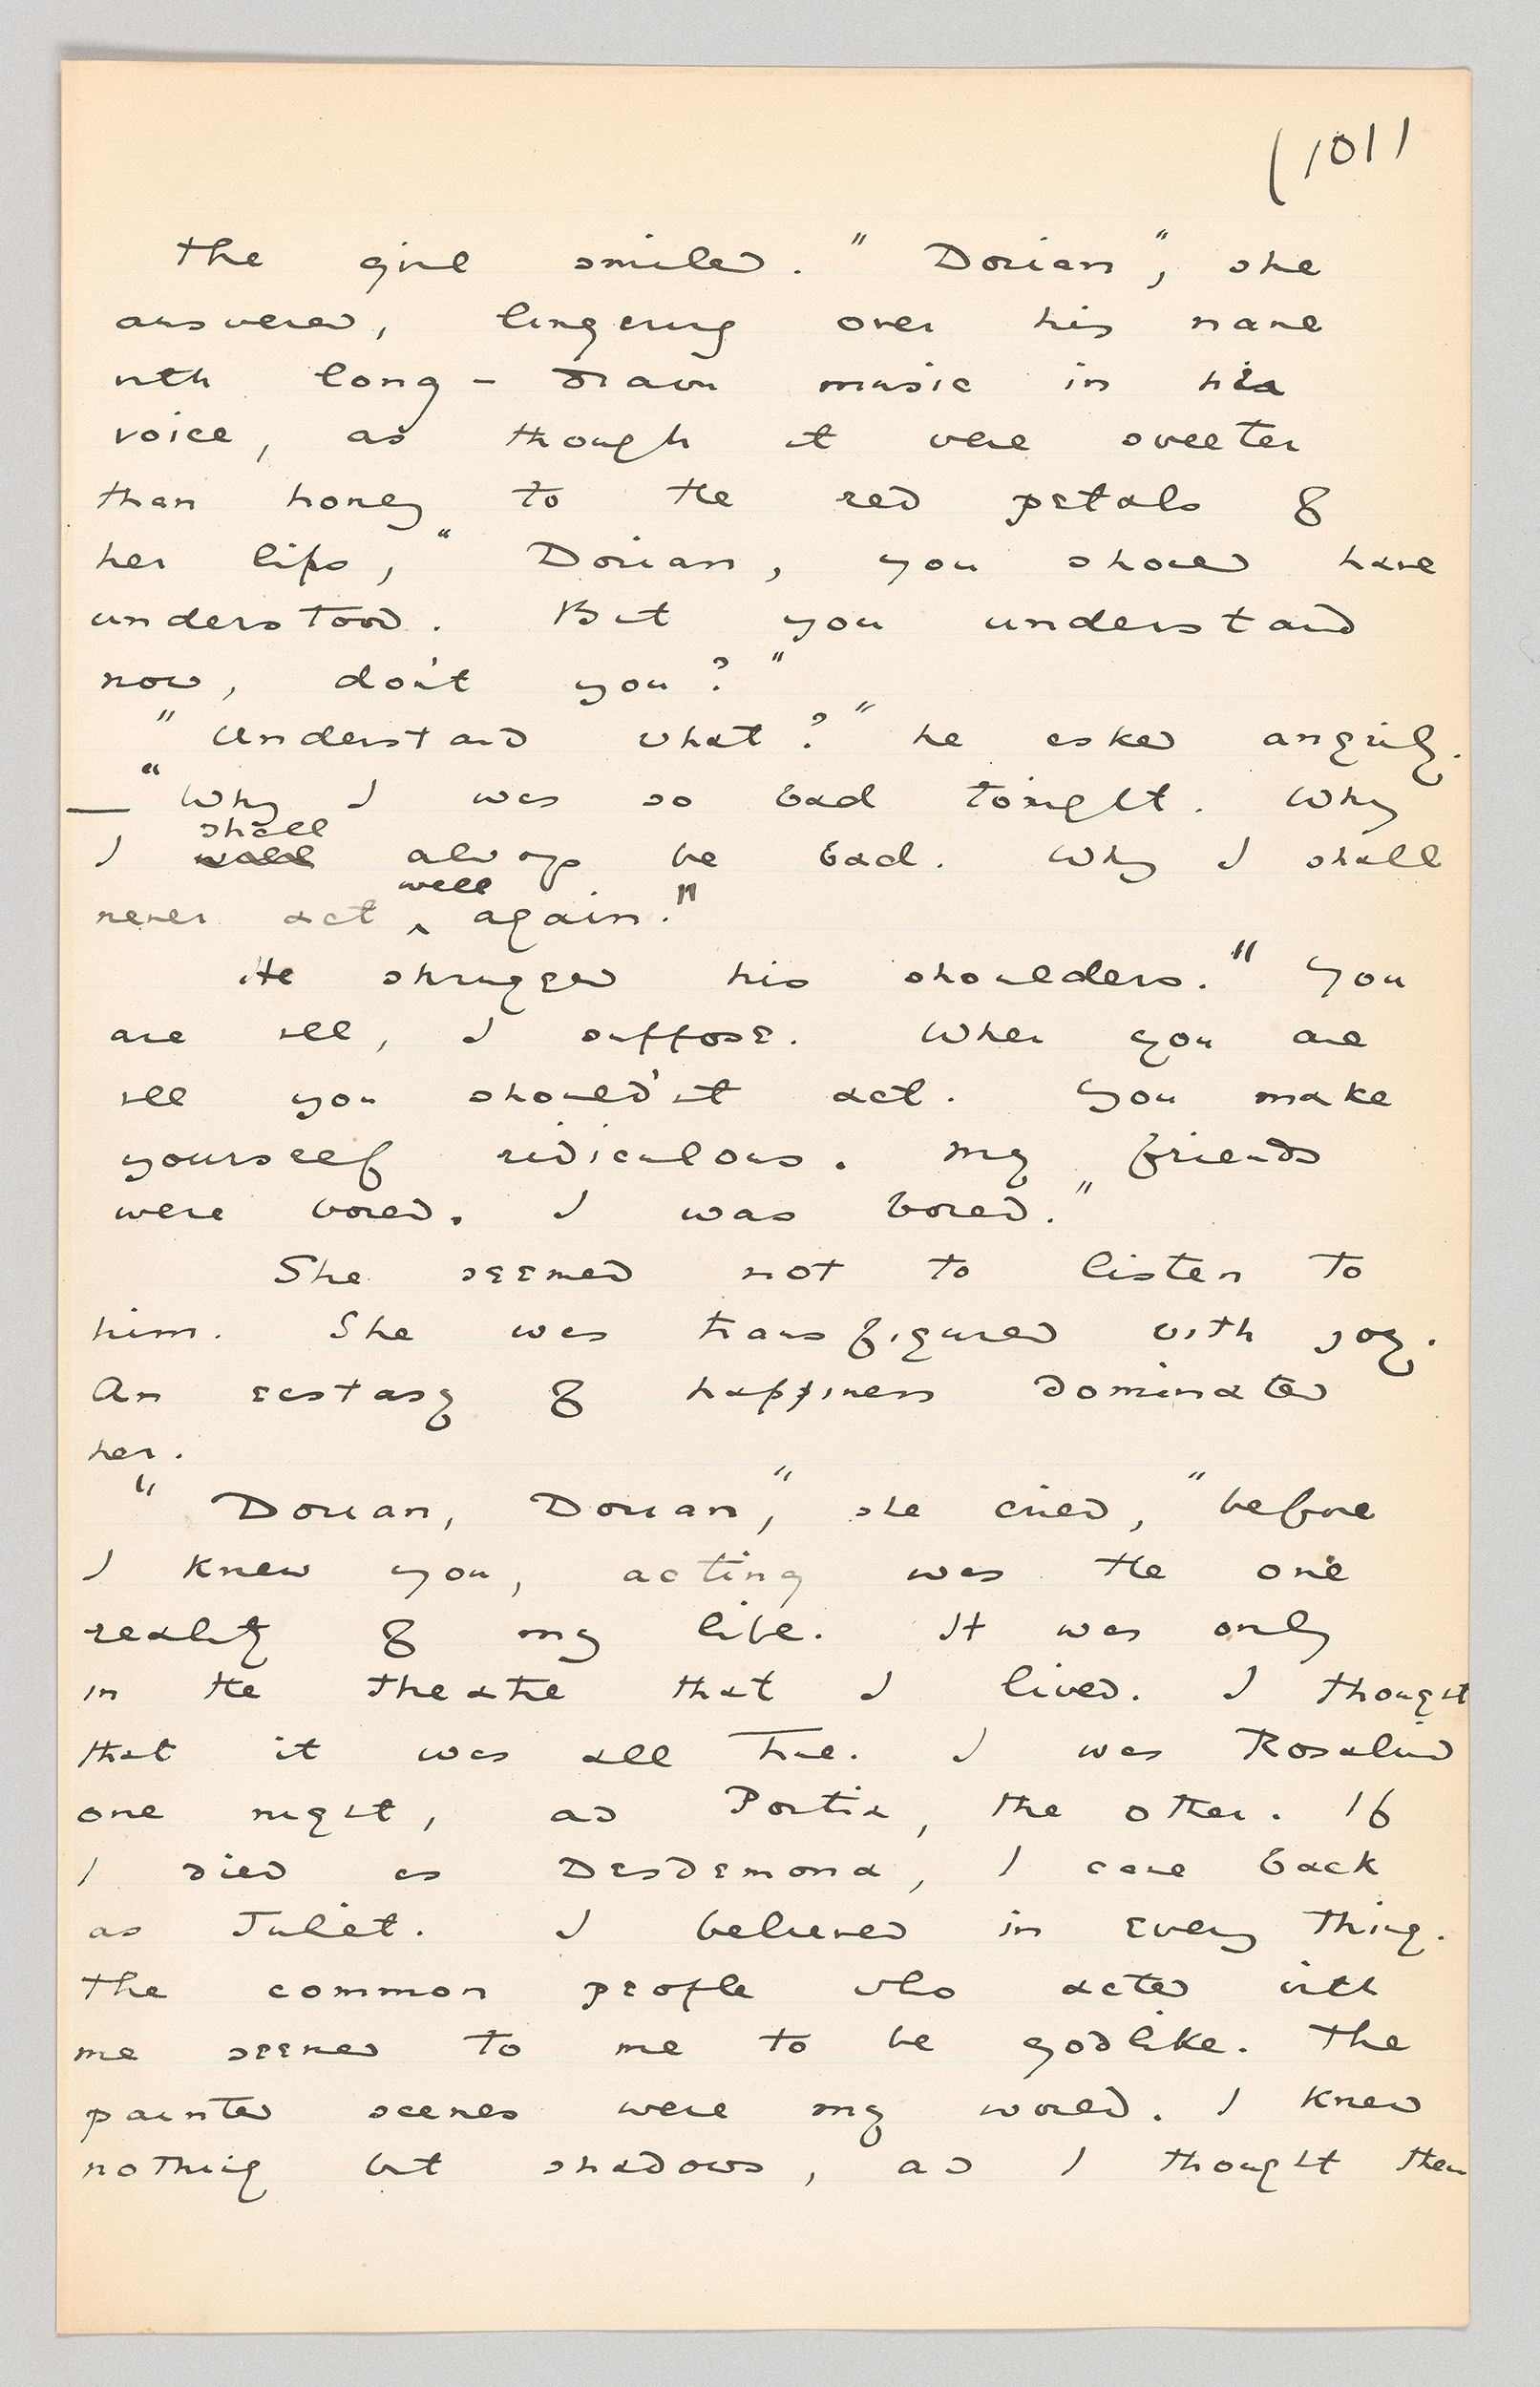 (1011
The girl smiled. "Dorian", she
answered, lingering over his name
with long-drawn music in her
voice, as though it were sweeter
than honey to the red petals of
her lips, "Dorian, you should have
understood. But you understand
now, don't you?"
"Understand what?" he asked angrily.
— "Why I was so bad tonight. Why
I shall always be bad. Why I shall
never act well again."
He shrugged his shoulders. "You
are ill, I suppose. When you are
ill you should'nt act. You make
yourself ridiculous. My friends
were bored. I was bored."
She seemed not to listen to
him. She was transfigured with joy.
An ecstasy of happiness dominated
her.
"Dorian, Dorian," she cried, "before
I knew you, acting was the one
reality of my life. It was only
in the theatre that I lived. I thought
that it was all true. I was Rosalind
one night, as Portia, the other. If
I died as Desdemona, I came back
as Juliet. I believed in every thing.
The common people who acted with
me seemed to me to be godlike. The
painted scenes were my world. I knew
nothing but shadows, as I thought them